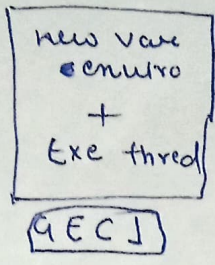 new var
enviro
+
Exe thred
GEC 1